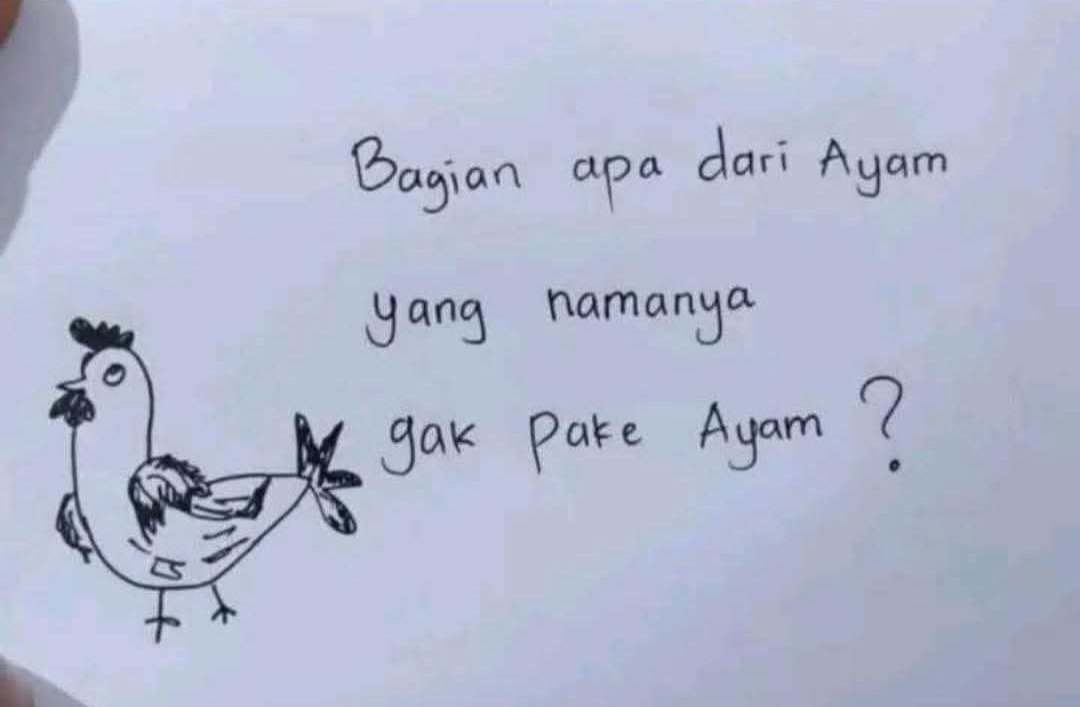 Bagian apa dari Ayam
yang namanya
gak pake Ayam ?